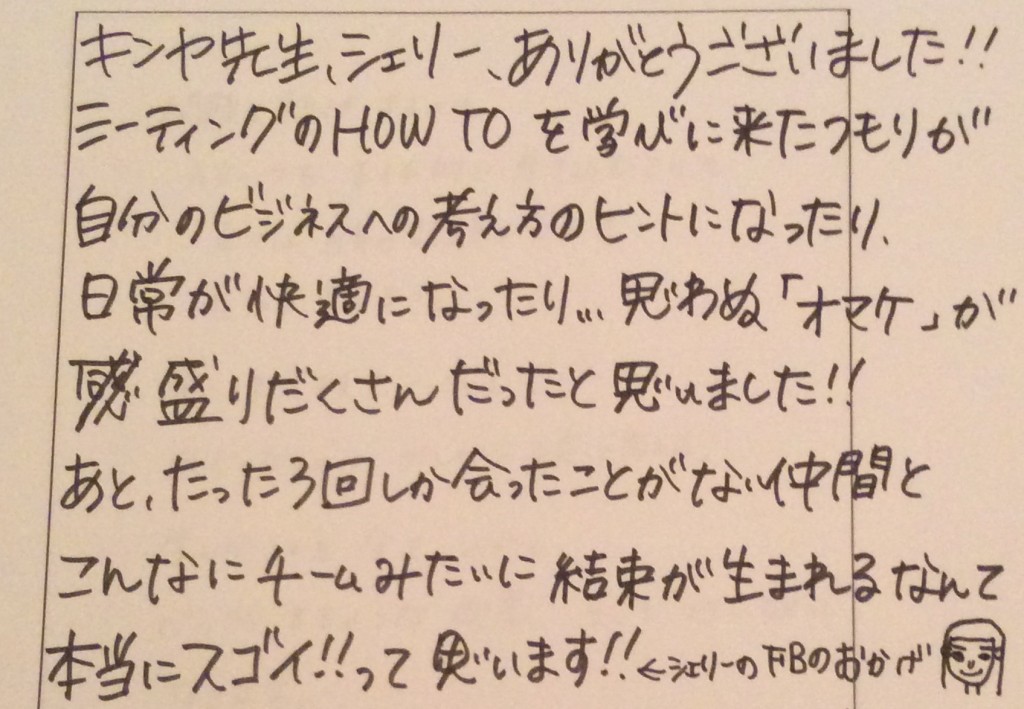 キンヤ先生、シェリー、ありがとうございました!!
ミーティングのHOW TO を学びに来たつもりが
自分のビジネスへの考え方のヒントになったり、
日常が快適になったり... 思わぬ「オマケ」が
盛りだくさんだったと思いました!!
あと、たった3回しか会ったことがない仲間と
こんなにチームみたいに結束が生まれるなんて
本当にスゴイ!!って思います!! ←シェリーのFBのおかげ